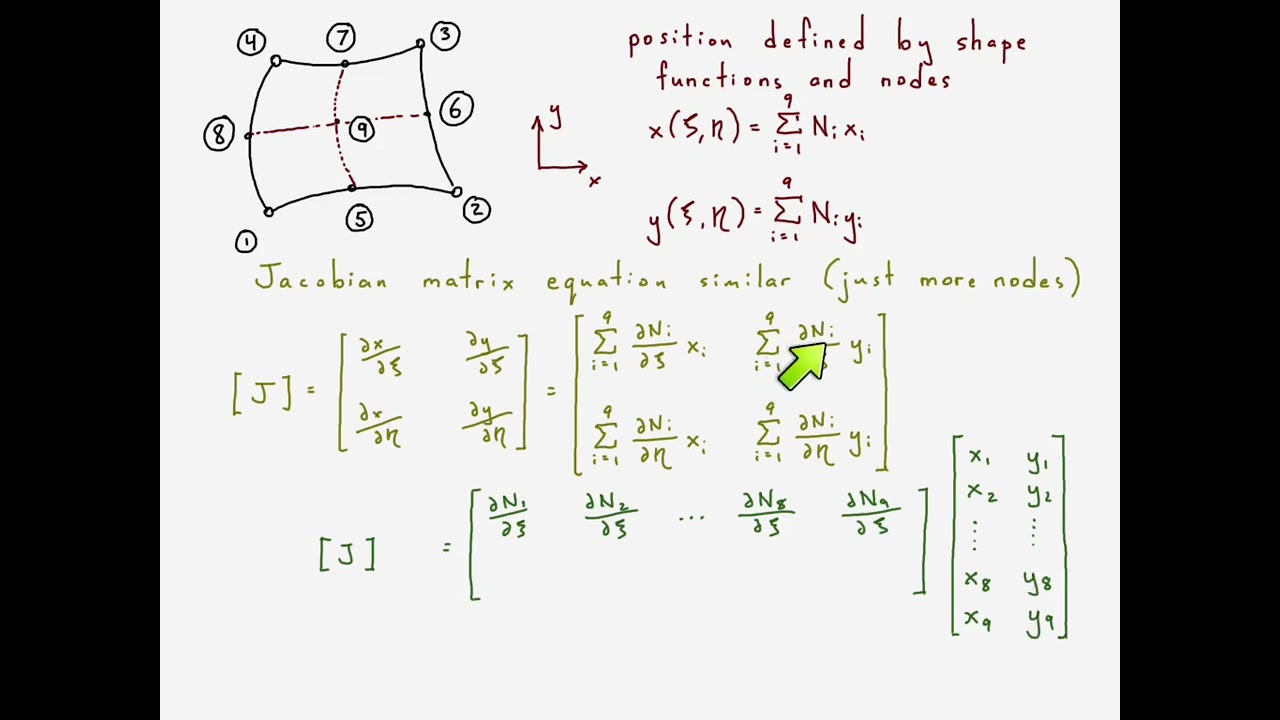 ④ ⑦ ③
⑧ ⑨ ⑥
① ⑤ ②
y
x
position defined by shape
functions and nodes
x(ξ,η) = Σ_{i=1}^{9} N_i x_i
y(ξ,η) = Σ_{i=1}^{9} N_i y_i
Jacobian matrix equation similar (just more nodes)
[J] = [ ∂x/∂ξ ∂y/∂ξ ; ∂x/∂η ∂y/∂η ] = [ Σ_{i=1}^{9} ∂N_i/∂ξ x_i Σ_{i=1}^{9} ∂N_i/ y_i ; Σ_{i=1}^{9} ∂N_i/∂η x_i Σ_{i=1}^{9} ∂N_i/∂η y_i ]
[J] = [ ∂N_1/∂ξ ∂N_2/∂ξ ... ∂N_8/∂ξ ∂N_9/∂ξ ] [ x_1 y_1 ; x_2 y_2 ; ⋮ ⋮ ; x_8 y_8 ; x_9 y_9 ]